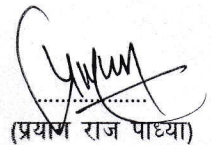 (प्रयाग राज पाध्या)